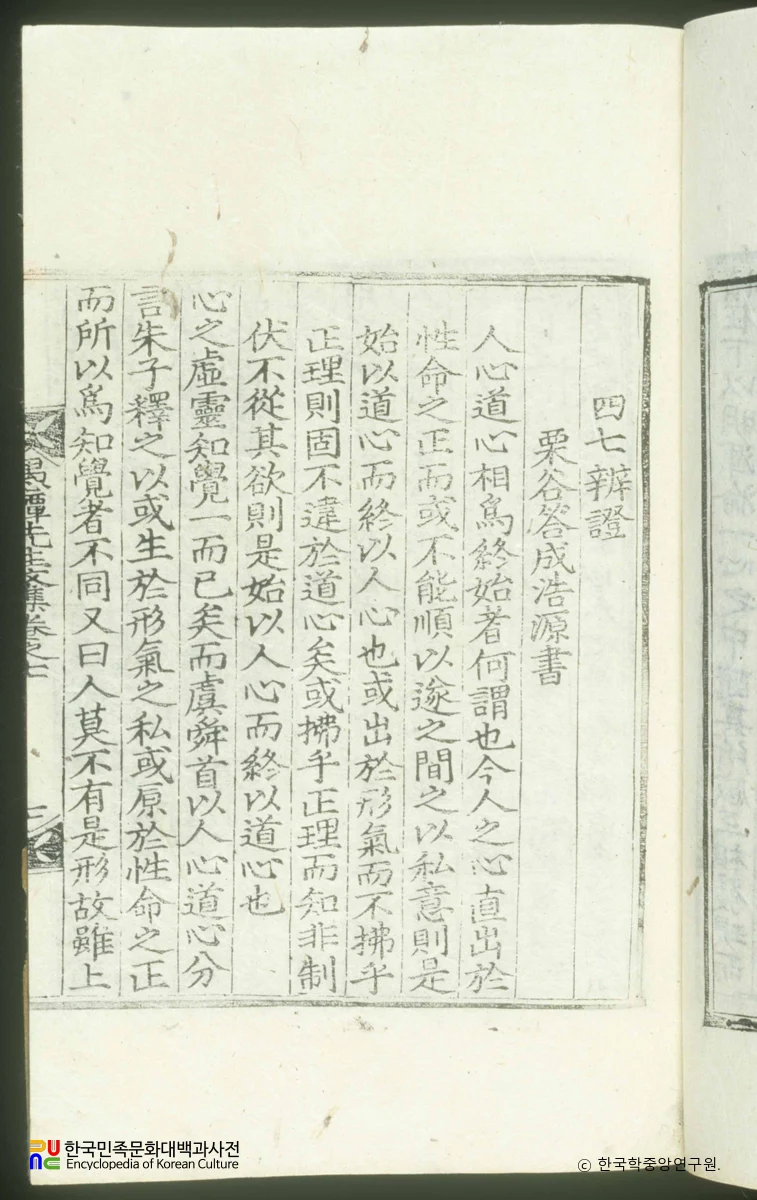 四七辨證
栗谷答成浩源書
人心道心相爲終始者何謂也今人之心直出於
性命之正而或不能順以遂之間之以私意則是
始以道心而終以人心也或出於形氣而不拂乎
正理則固不違於道心矣或拂乎正理而知非制
伏不從其欲則是始以人心而終以道心也
心之虛靈知覺一而已矣而虞舜首以人心道心分
言朱子釋之以或生於形氣之私或原於性命之正
而所以爲知覺者不同又曰人莫不有是形故雖上
愚潭先生文集卷之七
한국민족문화대백과사전
Encyclopedia of Korean Culture
© 한국학중앙연구원.